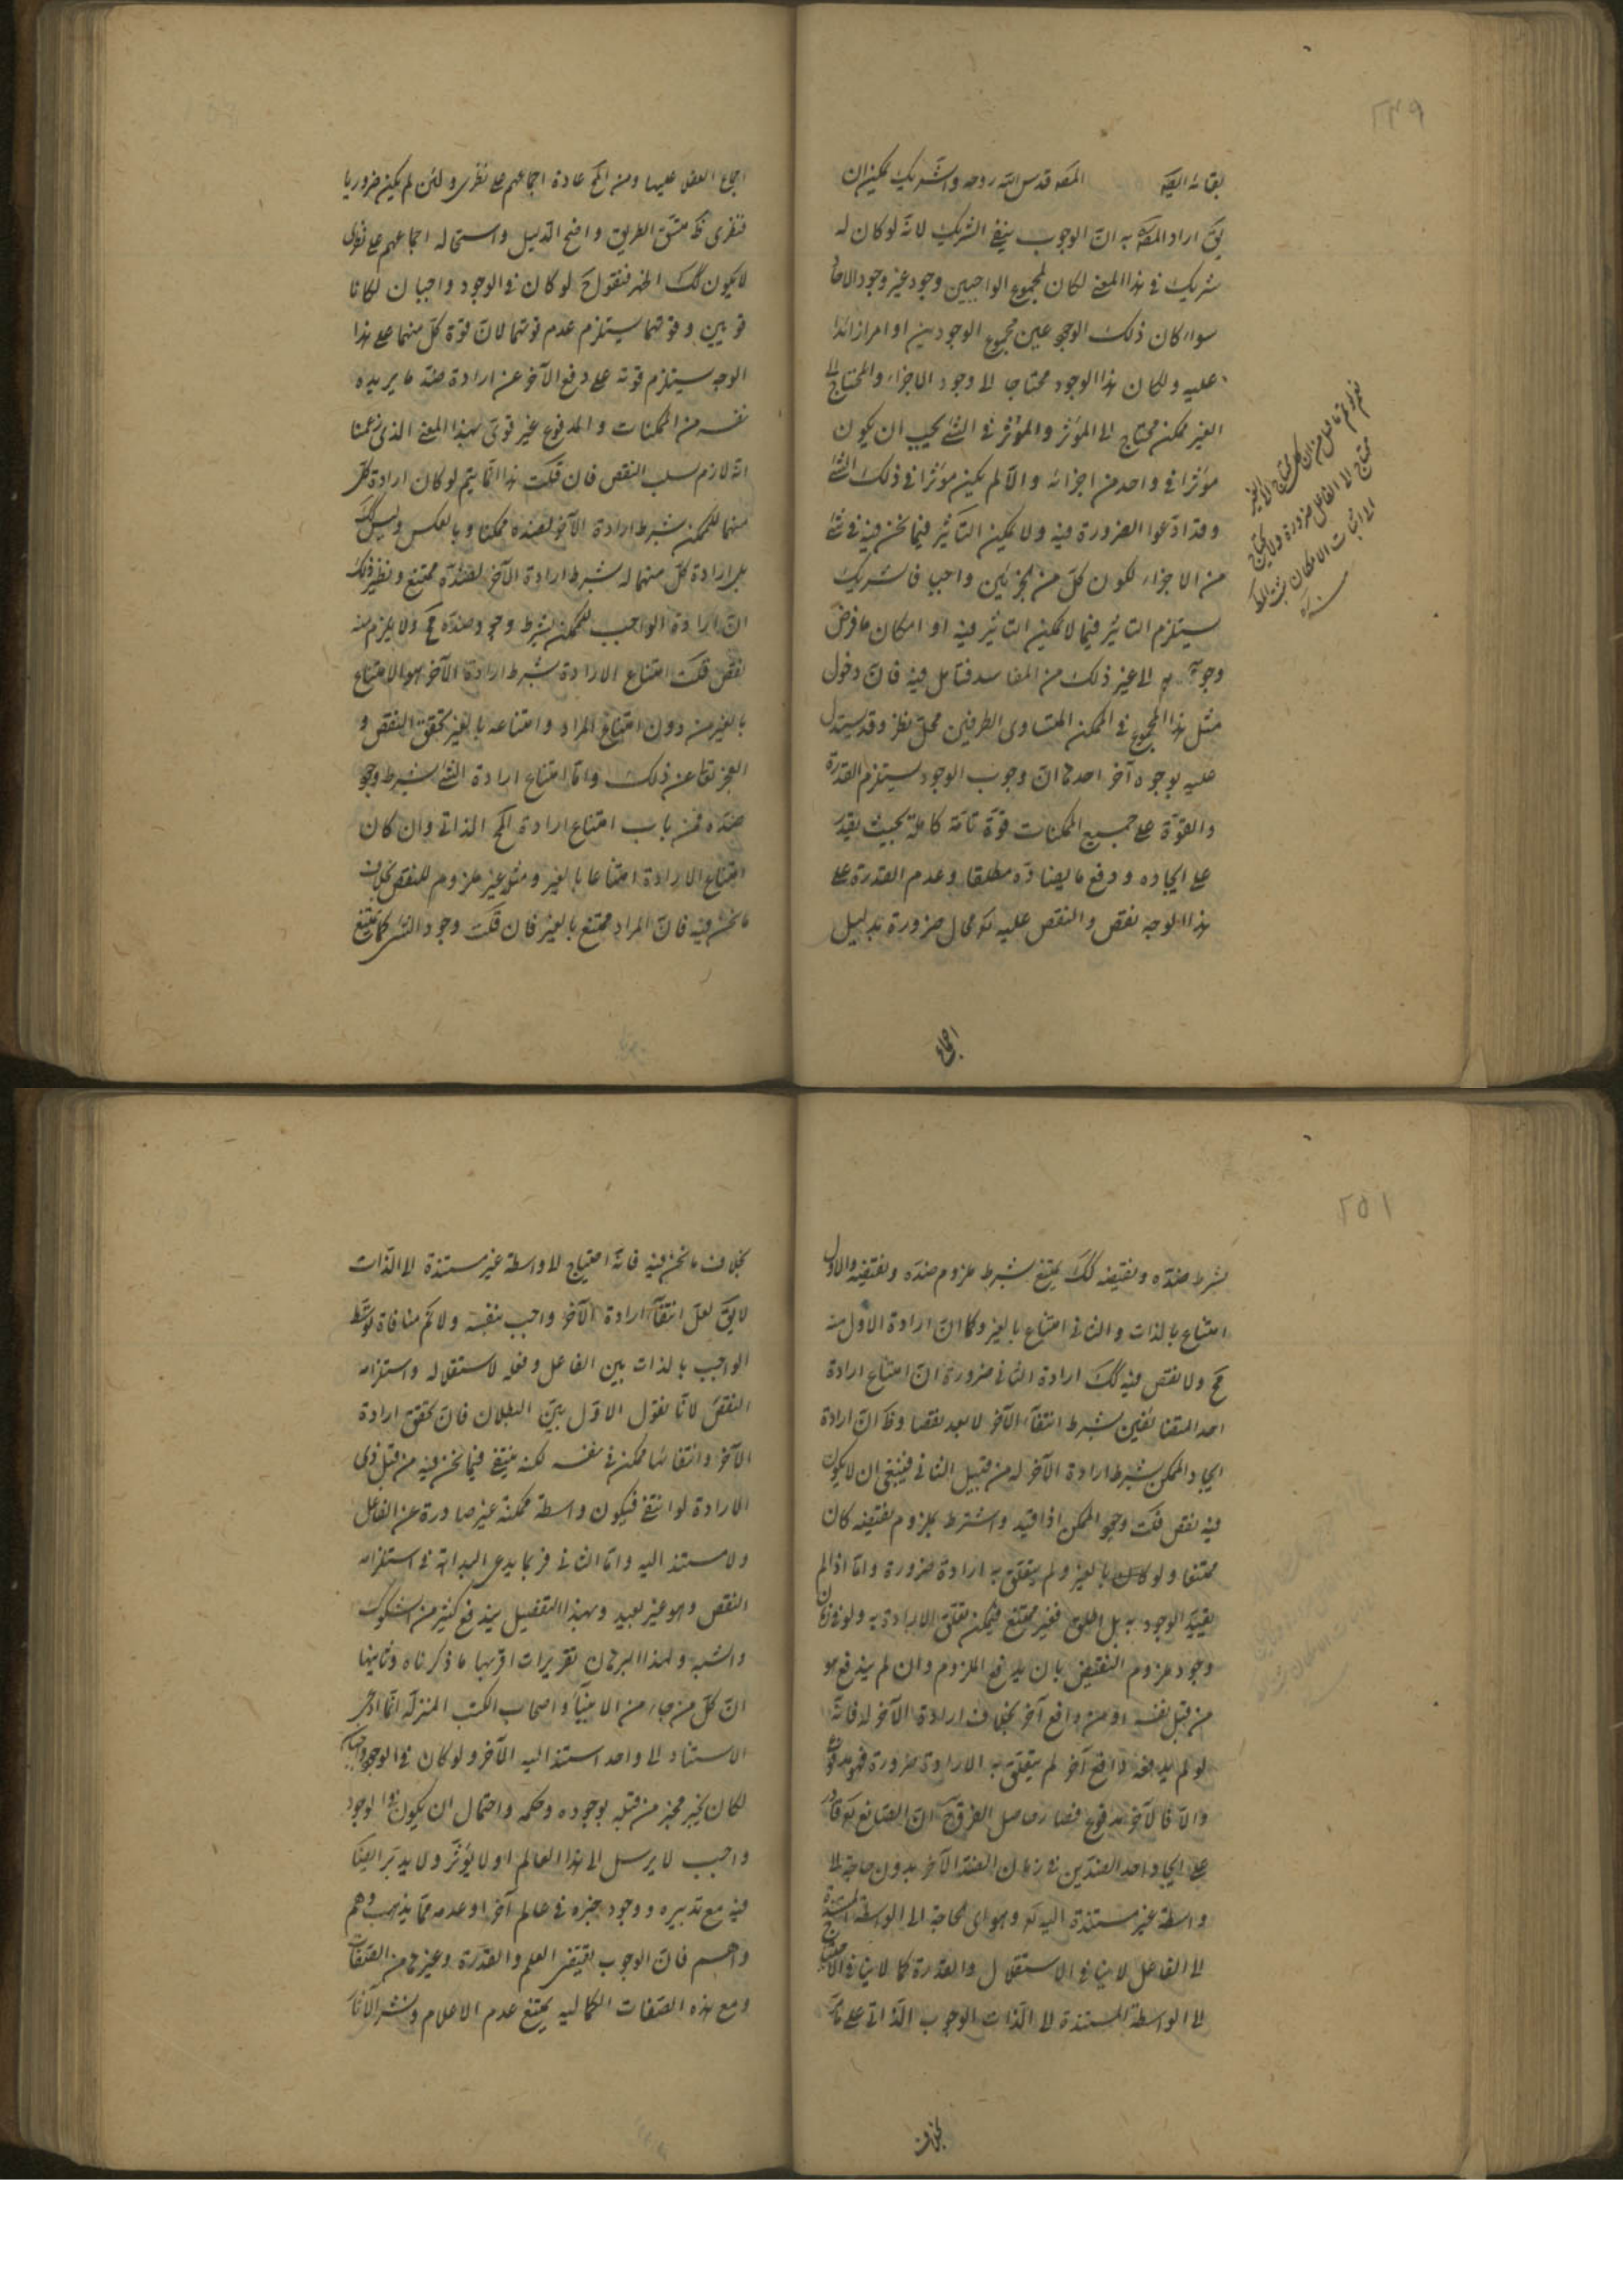 ٢٤٩
بقائه القيه المصه قدس الله روحه والشريك يمكن ان
يق اراد المصه به ان الوجوب ينفى الشريك لانه لو كان له
شريك فى هذا المعنى لكان لمجموع الواجبين وجود غير وجود الاحاد
سواء كان ذلك الوجود عين مجموع الوجودين او امرا زائدا
عليه ولكان هذا الوجود محتاجا الى وجود الاجزاء والمحتاج الى
الغير ممكن محتاج الى المؤثر والمؤثر فى الشئ يجب ان يكون
مؤثرا فى واحد من اجزائه والا لم يكن مؤثرا فى ذلك الشئ
وقد ادعوا الضرورة فيه ولا يمكن التأثير فيما نحن فيه فى شئ
من الاجزاء لكون كل من الجزئين واجبا فالشريك
يستلزم التاثير فيما لا يمكن التاثير فيه او امكان ما فرض
وجوبه الى غير ذلك من المفاسد فتامل فيه فان دخول
مثل هذا المجموع فى الممكن المتساوى الطرفين محل نظر وقد يستدل
عليه بوجوه آخر احدها ان وجوب الوجود يستلزم القدرة
والقوة على جميع الممكنات قوة تامة كاملة بحيث يقدر
على ايجاده ودفع ما يضاده مطلقا وعدم القدرة على
هذا الوجه نقص والنقص عليه تع محال ضرورة بدليل
محتاج الى الفاعل ضرورة ولا يحتاج
الى اثبات الامكان
اجماع
اجماع العقلاء عليها ومن المح عادة اجماعهم على نظرى ولئن لم يكن ضروريا
فنظرى ظ متسق الطريق واضح الدليل واستحالة اجماعهم على نظرى
لا يكون كك اظهر فنقول ح لو كان فى الوجود واجبان لكانا
قويين وقوتهما يستلزم عدم قوتهما لان قوة كل منهما على هذا
الوجه يستلزم قوته على دفع الآخر عن ارادة ضد ما يريده
نفسه من الممكنات والمدفوع غير قوى بهذا المعنى الذى زعمنا
انه لازم لسلب النقص فان قلت هذا انما يتم لو كان ارادة كل
منهما للممكن بشرط ارادة الآخر لضده ممكنا وبالعكس وليس كك
بل ارادة كل منهما له بشرط ارادة الآخر لضده ممتنع ونظير ذلك
ان ارادة الواجب للممكن بشرط وجود ضده مح ولا يلزم منه
نقص قلت امتناع الارادة بشرط ارادة الآخر هو الامتناع
بالغير من دون امتناع المراد وامتناعه بالغير تحقق النقص و
العجز تعالى عن ذلك واما امتناع ارادة الشئ بشرط وجود
ضده فمن باب امتناع ارادة المح الذاتى وان كان
امتناع الارادة امتناعا بالغير ومثله غير ملزوم للنقص بخلاف
ما نحن فيه فان المراد ممتنع بالغير فان قلت وجود الشئ كما يمتنع
٢٥١
بشرط ضده ونقيضه كك يمتنع بشرط ملزوم ضده ونقيضه والاول
امتناع بالذات والثانى امتناع بالغير وكما ان ارادة الاول منه
مح ولا نقص فيه كك ارادة الثانى ضرورة ان امتناع ارادة
احد المتنافيين بشرط انتفاء الآخر لا يعد نقصا وظ ان ارادة
ايجاد الممكن بشرط ارادة الآخر له من قبيل الثانى فينبغى ان لا يكون
فيه نقص قلت وجود الممكن اذا قيد واشترط بملزوم نقيضه كان
ممتنعا ولو كان بالغير ولم يتعلق به ارادة ضرورة واما اذا لم
يقيد الوجود به بل اطلق فغير ممتنع فيمكن تعلق الارادة به ولو فى زمان
وجود ملزوم النقيض بان يدفع الملزوم وان لم يندفع هو
من قبل نفسه او من دافع آخر بخلاف ارادة الآخر له فانه
لو لم يدفعه دافع آخر لم يتعلق به الارادة ضرورة فهو مدفوع
والا فالآخر مدفوع فصار حاصل الفرق ح ان الصانع تع قادر
على ايجاد احد الضدين فى زمان الضد الآخر بدون حاجة الى
واسطة غير مستندة اليه تع وهو اى الحاجة الى الواسطة المستندة
الى الفاعل لا ينافى الاستقلال والقدرة كما لا ينافى الاحتياج
الى الواسطة المستندة الى الذات الوجوب الذاتى على ما مر
بخلاف
بخلاف ما نحن فيه فانه احتياج الى واسطة غير مستندة الى الذات
لا يق لعل انتفاء ارادة الآخر واجب بنفسه ولا نم منافاة توسط
الواجب بالذات بين الفاعل وفعله لاستقلاله واستلزامه
النقص لانا نقول الاول بين البطلان فان تحقق ارادة
الآخر وانتفائها ممكن فى نفسه لكنه ينتفى فيما نحن فيه من قبل ذى
الارادة لو انتفى فيكون واسطة ممكنة غير صادرة عن الفاعل
ولا مستند اليه واما الثانى فربما يدعى البداهة فى استلزامه
النقص وهو غير بعيد وبهذا التفصيل يندفع كثير من الشكوك
والشبه ولهذا البرهان تقريرات اقربها ما ذكرناه وثانيها
ان كل من جاء من الانبياء واصحاب الكتب المنزلة انما ادعى
الاستناد الى واحد استند اليه الآخر ولو كان فى الوجود واجبان
لكان يخبر مخبر من قبله بوجوده وحكمه واحتمال ان يكون فى الوجود
واجب لا يرسل الى هذا العالم او لا يؤثر ولا يدبر ايضا
فيه مع تدبيره ووجود خبره فى عالم آخر او عدمه مما يذهب وهم
واهم فان الوجوب يقتضى العلم والقدرة وغيرها من الصفات
ومع هذه الصفات الكمالية يمتنع عدم الاعلام ونشر الآثار